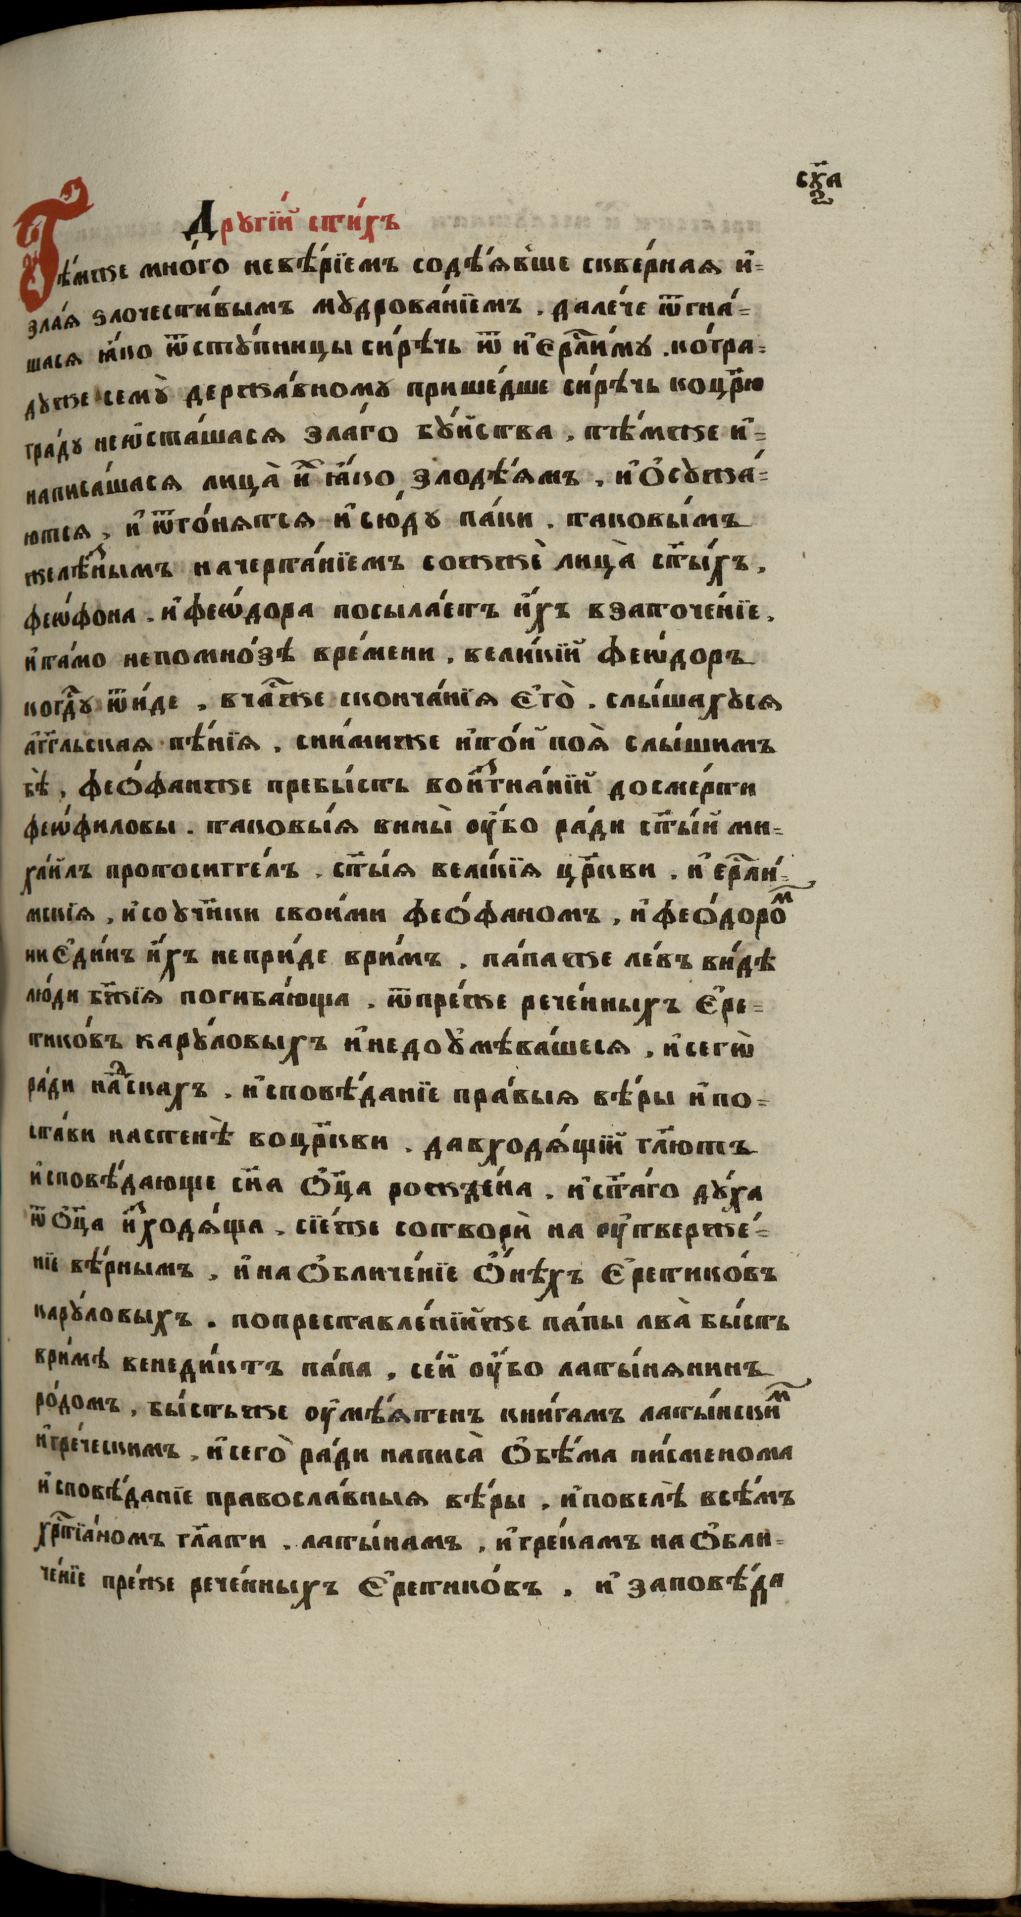 сх҃а
2
Дрꙋгі́й сти́хъ
Тѣ́мже мно́го невѣ́рїемъ содѣ́явше скве́рная и҆=
зла́я злочести́вымъ мꙋдрова́нїемъ . дале́че ѿгна́=
шася ꙗ҆́ко ѿстꙋ́пницы си́рѣчь ѿ и҆єрⷭ҇ли́мꙋ . ко́гра=
дꙋже семꙋ̀ держа́вномꙋ прише́дше си́рѣчь коцр҃ю
гра́дꙋ неѡ҆ста́шася зла́го бꙋ́йства , тѣ́мже и҆=
написа́шася лица̀ и҆́хъ ꙗ҆́ко злодѣ́ямъ , и҆ ѻ҆сꙋжа́=
ются , и҆ ѿго́нятся и҆сю́дꙋ па́ки . таковы́мъ
желѣ́знымъ начерта́нїемъ сожжѐ лица̀ ст҃ы́хъ ,
феѡ́фона . и҆ феѡ́дора посыла́етъ и҆́хъ взаточе́нїе ,
и҆та́мо непомно́зѣ вре́мени , вели́кїй феѡ́доръ
когдꙋ̀ ѿи́де , вча́сже сконча́нїя є҆гѡ̀ . слы́шахꙋся
а҆́гг҃льская пѣ́нїя , сни́миже и҆то́й поя̀ слы́шимъ
бѣ̀ , феѻ́фанже пребы́сть воизгна́нїй досме́рти
феѡ́филовы . таковы́я вины̀ ᲂу҆́бо ра́ди ст҃ы́й ми=
хаи́лъ протосиггелъ . ст҃ы́я вели́кїя цр҃кви . и҆ єрⷭ҇ли́=
мскїя , и҆соучн҃ики свои́ми феѻ́фаномъ , и҆ феѻ́доромъ
ни є҆ди́нъ и҆́хъ непрїи́деври́мъ . па́паже ле́въ ви́дѣ
лю́ди бж҃їя погиба́юща . ѿпре́же рече́нныхъ є҆ре=
тико́въ карꙋ́ловыхъ и҆недоꙋмѣва́шеся , и҆ сегѡ̀
ра́ди на́дскахъ . и҆сповѣ́данїе пра́выя вѣ́ры и҆ по=
ста́ви настенѣ̀ воцр҃кви . давходя́щїй гл҃ютъ
и҆сповѣ́дающе сн҃а ѻ҆ц҃а рожде́на . и҆ ст҃а́го дꙋ́ха
ѿ ѻ҆ц҃а и҆сходя́ща , сїе́же сотворѝ на ᲂу҆тверже́=
нїе вѣ́рнымъ , и҆ на ѻ҆бличе́нїе ѻ҆́нѣхъ є҆ретико́въ
карꙋ́ловыхъ . попреставле́нїйже па́пы лва̀ бы́сть
ври́мѣ венеди́ктъ па́па , се́й ᲂу҆́бо латы́нянинъ
ро́домъ , бы́стьже ᲂу҆мѣ́ятенъ кни́гамъ латы́нскимъ
и҆ гре́ческимъ , и҆ сего̀ ра́ди написа̀ ѻ҆бѣ́ма пи́сменома
и҆сповѣ́данїе правосла́вныя вѣ́ры , и҆ повелѣ̀ всѣ́мъ
хрⷭ҇тїа́номъ гл҃ати . латы́намъ , и҆ гре́камъ на ѻ҆бли=
че́нїе пре́же рече́нныхъ є҆ретико́въ , и҆ заповѣ́да